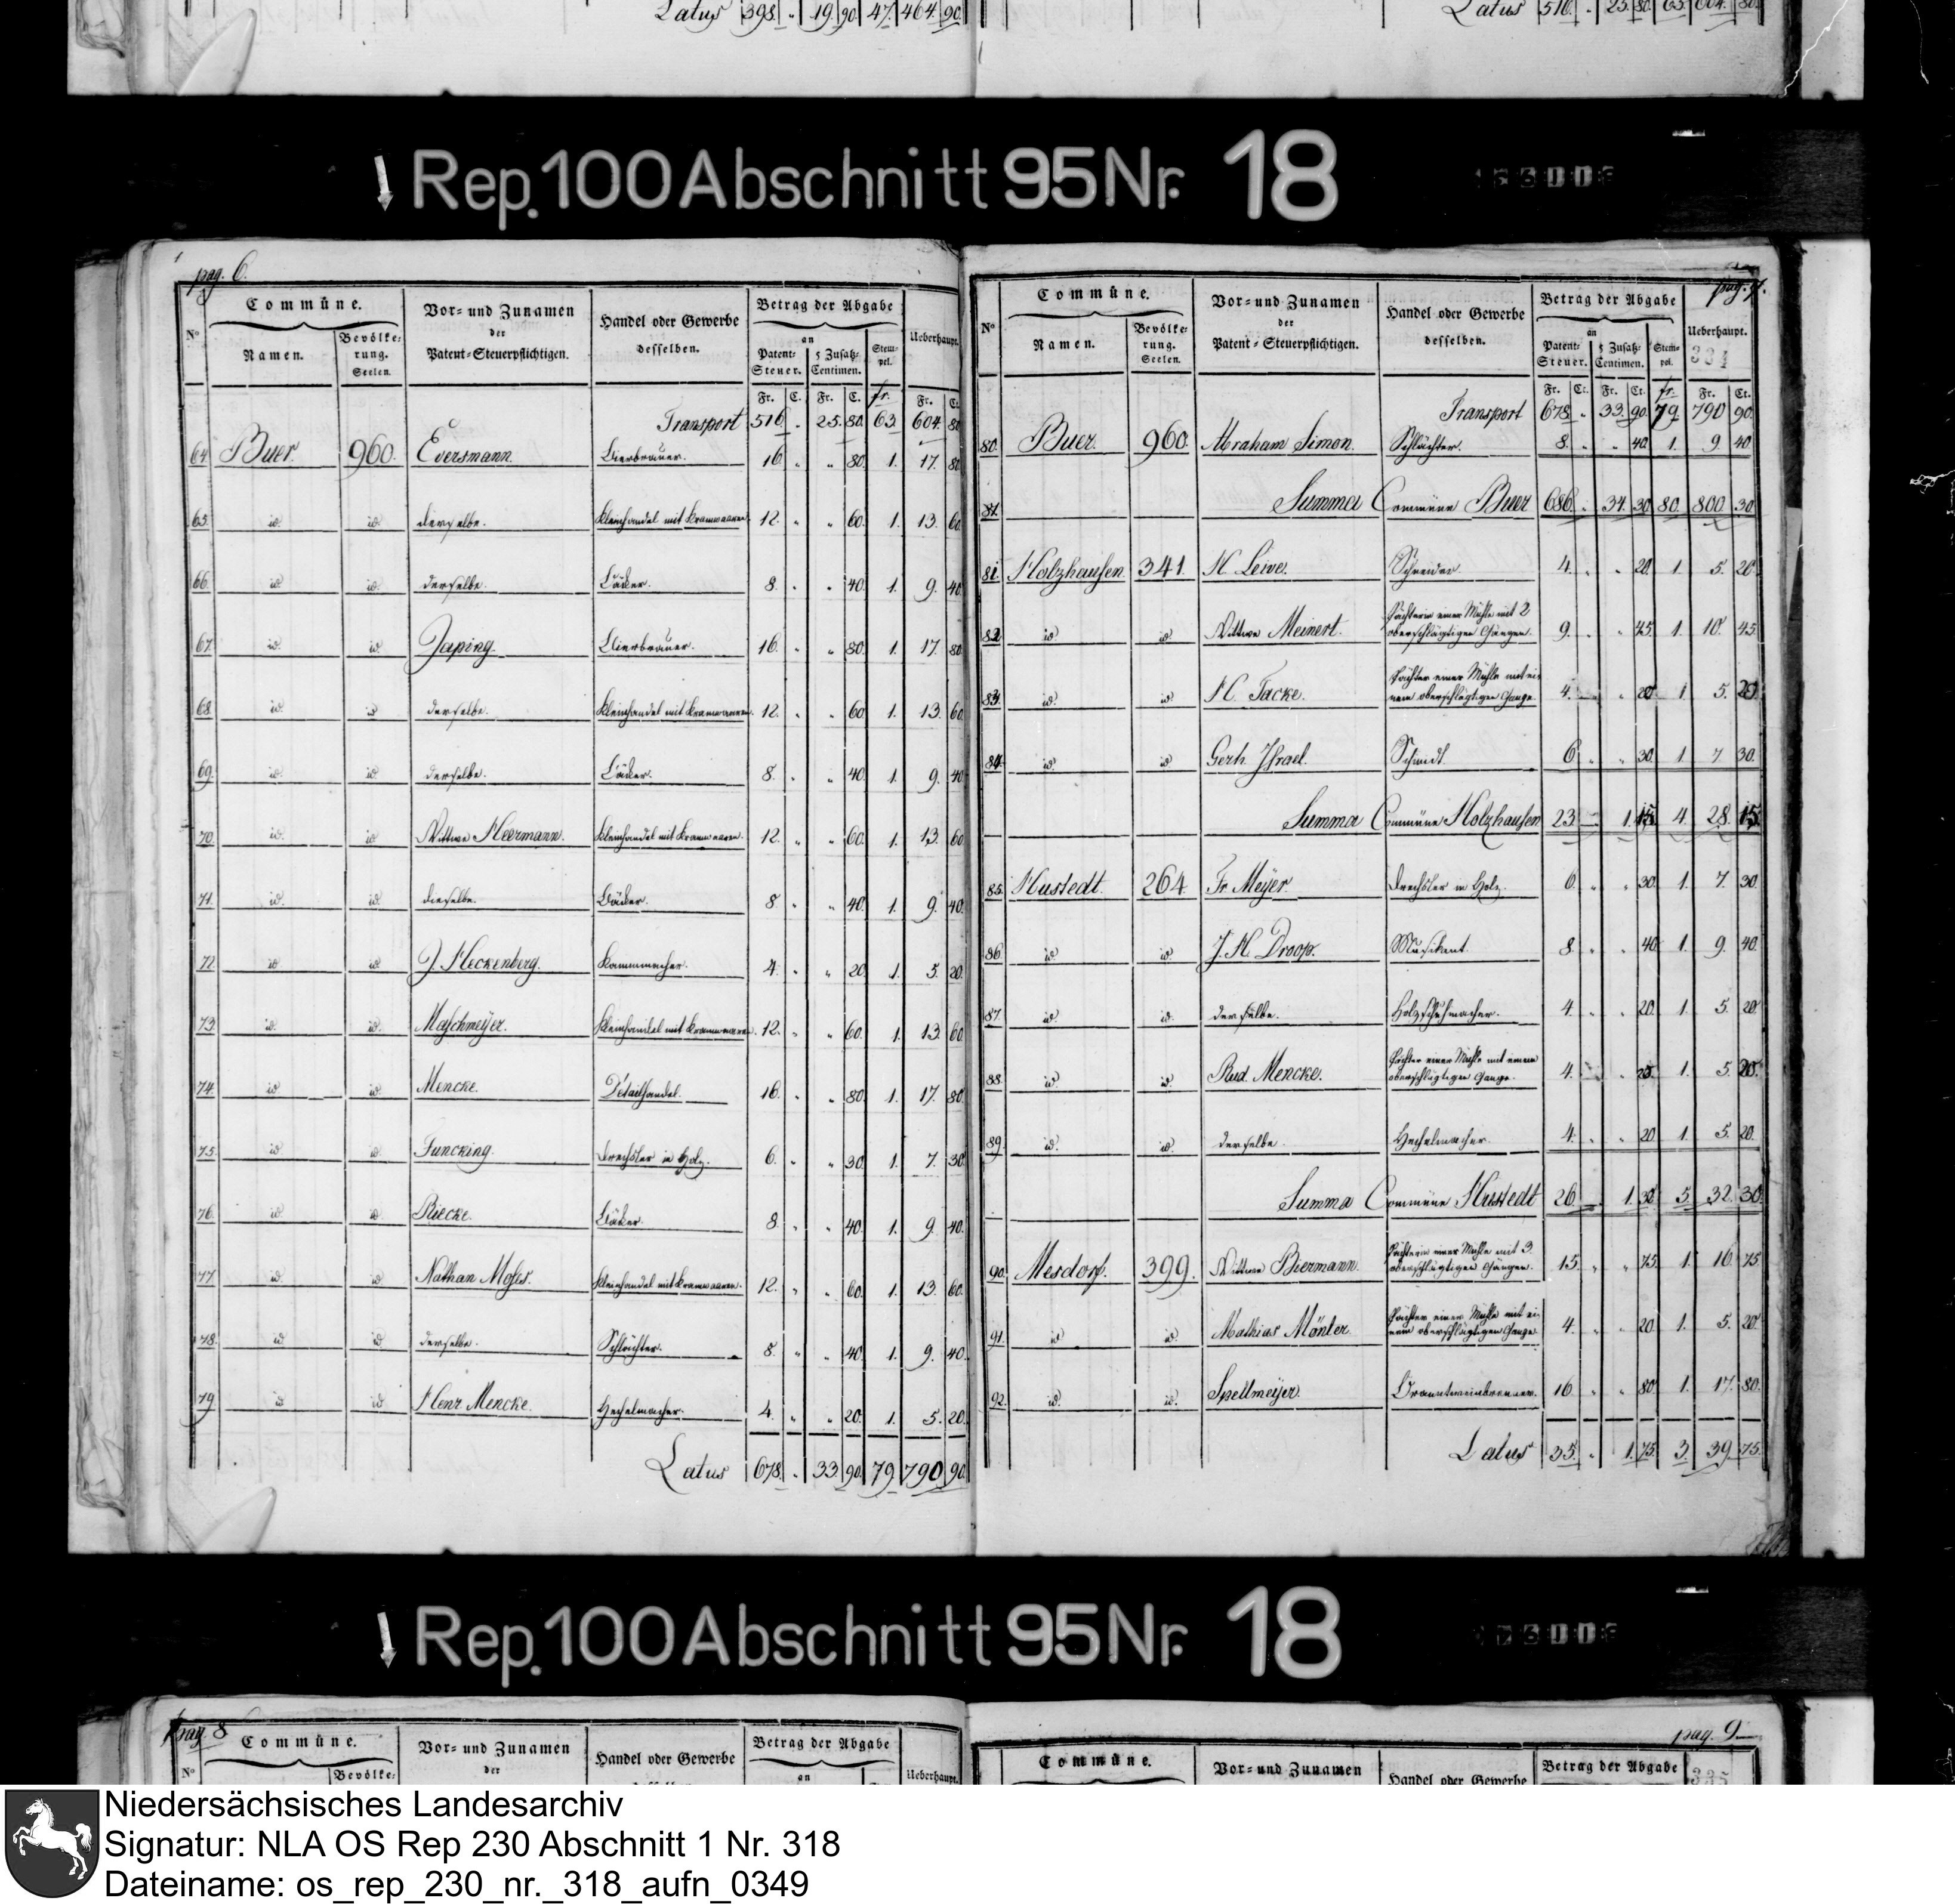 Latus 398. " 19. 90. 47. 464. 90.
Latus 516. " 25. 80. 63. 604. 80.
Rep. 100 Abschnitt 95 Nr. 18
pag. 6.
Commüne.
Vor- und Zunamen
der
Patent-Steuerpflichtigen.
Handel oder Gewerbe
desselben.
Betrag der Abgabe
an
Ueberhaupt.
N°
Namen.
Bevölke-
rung.
Seelen.
Patent-
Steuer.
5 Zusatz-
Centimen.
Stem-
pel.
Fr. C. Fr. C. fr. Fr. Ct.
Transport 516. " 25. 80. 63. 604. 80
64 Buer 960. Eversmann. Bierbrauer. 16. " " 80. 1. 17. 80
65. id. id derselbe. Kleinhandel mit Kramwaaren 12. " " 60. 1. 13. 60
66. id. id. derselbe. Bäcker. 8. " " 40. 1. 9. 40
67. id. id Japing. Bierbrauer. 16. " " 80. 1. 17. 80
68. id. id derselbe. Kleinhandel mit Kramwaaren. 12. " " 60 1. 13. 60
69. id. id. derselbe. Bäcker. 8. " " 40. 1. 9. 40
70. id. id Wittwe Heermann. Kleinhandel mit Kramwaaren. 12. " " 60. 1. 13. 60
71. id. id. dieselbe. Bäcker. 8. " " 40. 1. 9. 40.
72. id id J. Heckenberg. Kammmacher. 4. " " 20 1. 5. 20.
73. id. id. Maschmeyer. Kleinhandel mit Kramwaaren. 12. " " 60. 1. 13 60
74. id id. Mencke. Détailhandel. 16. " " 80. 1. 17. 80.
75. id id. Funcking. Drechsler in Holz. 6. " " 30. 1. 7. 30
76. id. id Riecke. Bäcker. 8. " " 40. 1. 9. 40.
77 id. id Nathan Moses. Kleinhandel mit Kramwaaren. 12. " " 60. 1. 13. 60.
78. id id derselbe. Schlächter. 8. " " 40. 1. 9. 40.
79 id id Henr Mencke. Hechelmacher. 4. " " 20. 1. 5. 20.
Latus 678. " 33. 90. 79. 790 90.
pag. 7.
Commüne.
Vor- und Zunamen
der
Patent-Steuerpflichtigen.
Handel oder Gewerbe
desselben.
Betrag der Abgabe
an
Ueberhaupt.
334
N°
Namen.
Bevölke-
rung.
Seelen.
Patent-
Steuer.
5 Zusatz-
Centimen.
Stem-
pel.
Fr. Ct. Fr. Ct. fr. Fr. Ct.
Transport 678. " 33. 90. 79. 790 90.
80. Buer. 960. Abraham Simon. Schlächter. 8. " " 40. 1. 9. 40
81. Summa Commüne Buer 686. " 34. 30. 80. 800. 30.
81. Holzhausen. 341. H Lewe. Schneider. 4. " " 20. 1. 5. 20
82 id id Wittwe Meinert. Pächterin einer Mühle mit 2
oberschlägtigen Gängen. 9. " " 45. 1. 10. 45.
83. id. id H. C. Tacke. Pächter einer Mühle mit ei-
nem oberschlägtigen Gange. 4. " " 20. 1. 5. 20
84. id. id Gerh. Israel. Schmidt. 6 " " 30. 1 7. 30.
Summa Commüne Holzhausen 23 1. 15. 4. 28. 15.
85. Hustedt. 264 Fr Meÿer. Drechsler in Holz. 6. " " 30. 1. 7. 30
86. id id. J. H. Droop. Musikant. 8 " " 40. 1. 9. 40.
87. id. id. derselbe. Holzschuhmacher. 4. " " 20. 1. 5. 20.
88. id. id. Rud. Mencke. Pächter einer Mühle mit einem
oberschlägtigen Gange. 4. " " 20. 1. 5. 20.
89. id. id. derselbe. Hechelmacher. 4. " " 20 1. 5. 20.
Summa Commüne Hustedt 26 1. 30. 5. 32. 30.
90. Mesdorf. 399. Wittwe Biermann. Pächterin einer Mühle mit 3
oberschlägtigen Gängen. 15. " " 75. 1. 16. 75.
91. id id. Mathias Mönter. Pächter einer Mühle mit ei-
nem oberschlägtigen Gange. 4. " " 20 1. 5. 20.
92. id. id. Spellmeÿer. Branntweinbrenner. 16. " " 80. 1. 17. 80.
Latus 35. " 1. 75. 3. 39. 75.
Rep. 100 Abschnitt 95 Nr. 18
pag. 8
Commüne.
Vor- und Zunamen
der
Handel oder Gewerbe
Betrag der Abgabe
an
Ueberhaupt.
N°
Bevölke-
pag. 9
Commüne.
Vor- und Zunamen
Handel oder Gewerbe
Betrag der Abgabe
335
Niedersächsisches Landesarchiv
Signatur: NLA OS Rep 230 Abschnitt 1 Nr. 318
Dateiname: os_rep_230_nr._318_aufn_0349